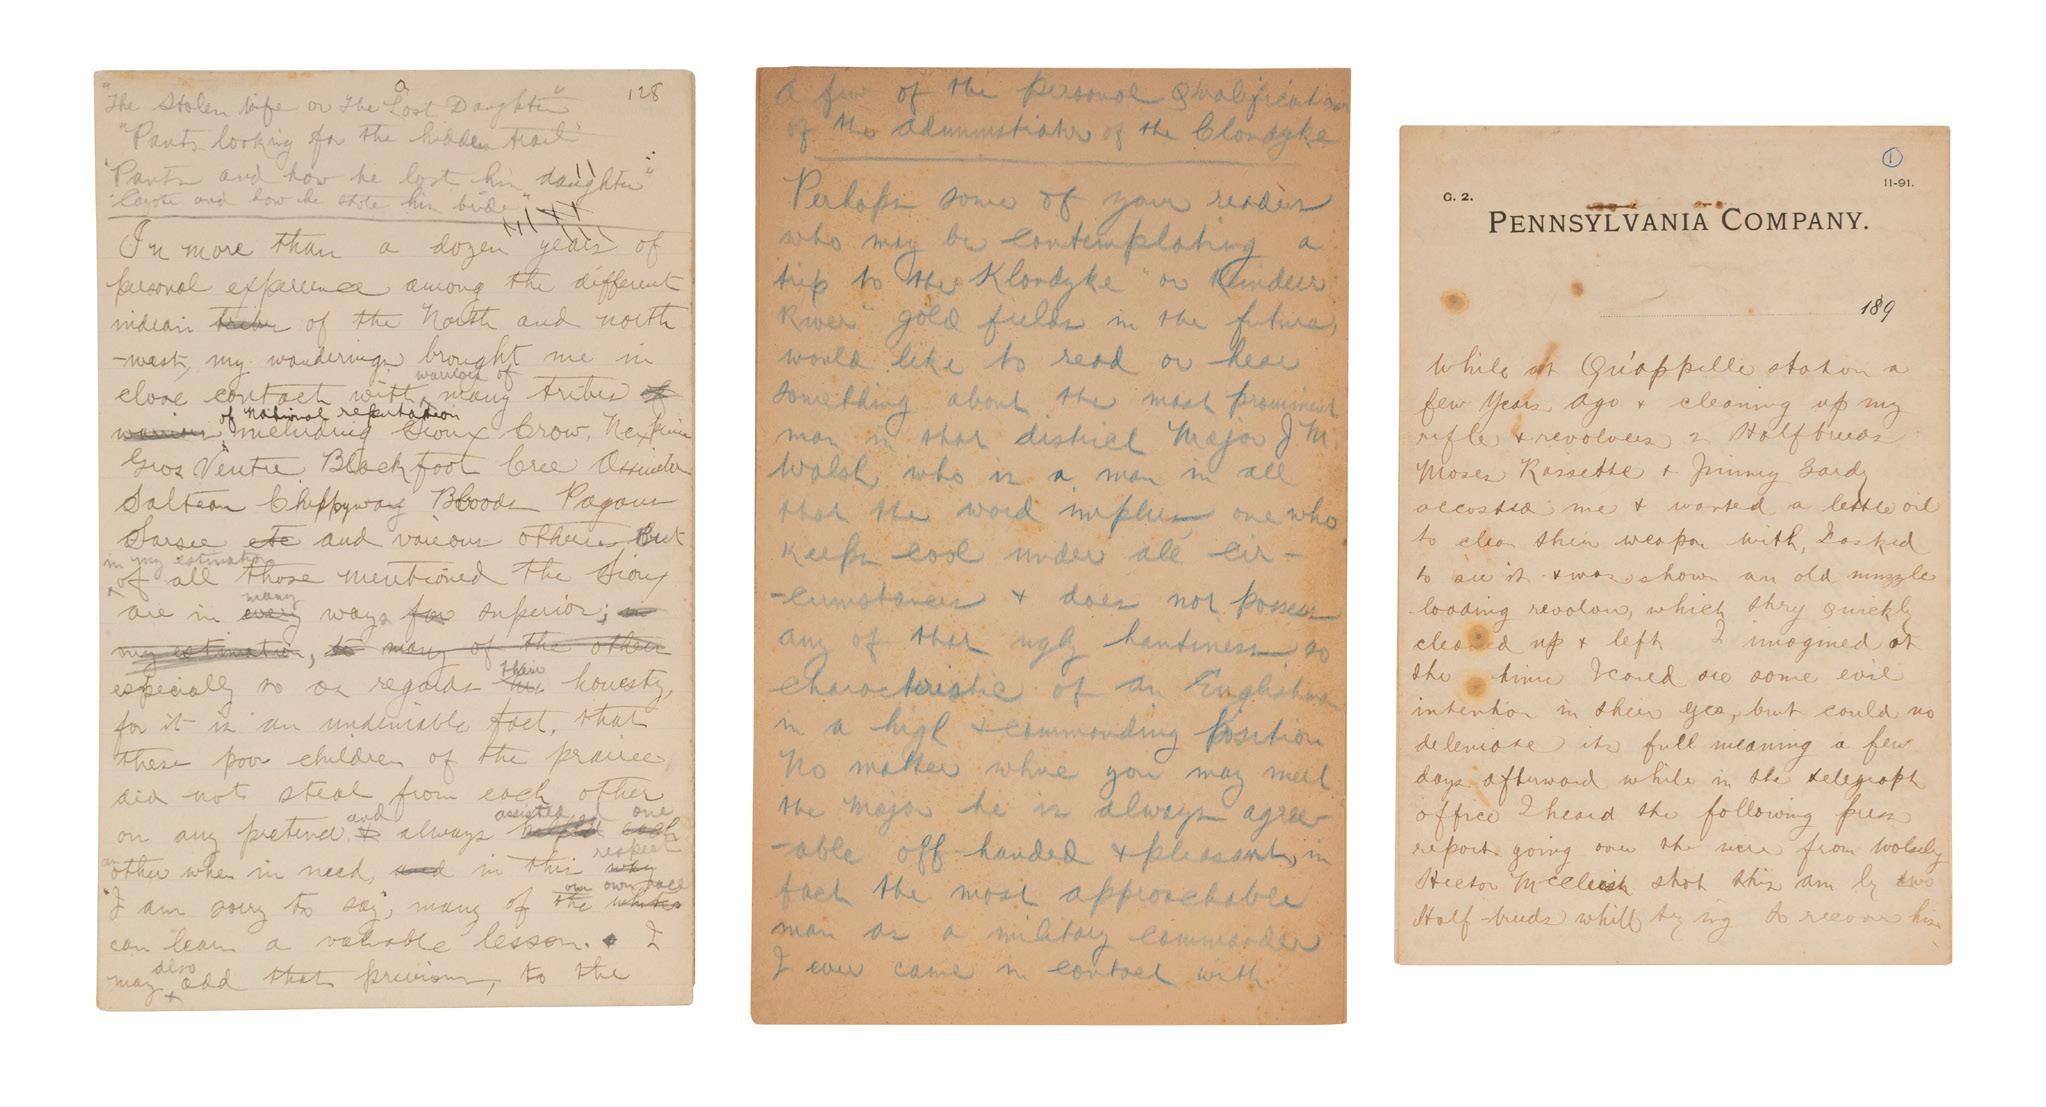 128
"The Stolen Wife or The a Lost Daughter"
"Pants looking for the hidden trail"
"Pants and how he lost his daughter"
"Coyote and how he stole his bride"
In more than a dozen years of
personal experience among the different
indian tribes of the North and north
-west, my wanderings brought me in
warriors of
close contact with many tribes of
of national reputation
warriors including Sioux Crow, Nez Perce
Gros Ventre Blackfoot Cree Assinibo
Salteau Chippyway Bloods Pagans
Sarsee etc and various others But
in my estimation
of all those mentioned the Sioux
many
are in every ways far superior; in
my estimation, to many of the other
their
especially so as regards his honesty,
for it is an undeniable fact, that
these poor children of the prairie
did not steal from each other
and assisted one
on any pretend & always helped each
an respect
other when in need, and in this why
our own race
"I am sorry to say", many of the whites
can learn a valuable lesson. I
also
may add that previous, to the
A few of the personal Qualifications
of the administrator of the Clondyke
Perhaps some of your readers
who may be contemplating a
trip to the "Klondyke" or Reindeer
River" gold fields in the future,
would like to read or hear
something about the most prominent
man in that district Major J. M.
Walsh, who is a man in all
that the word implies, one who
keeps cool under all cir-
-cumstances & does not possess
any of that ugly hautiness so
characteristic of an Englishman
in a high & commanding position
No matter where you may meet
the Major he is always agree-
-able off handed & pleasant, in
fact the most approachable
man as a military commander
I ever came in contact with
1
11-91.
G. 2.
PENNSYLVANIA COMPANY.
189
While at Qu'appelle station a
few Years ago & cleaning up my
rifle & revolvers 2 Halfbreeds
Moses Rassette & Jimmy Gardy
accosted me & wanted a little oil
to clean their weapon with, I asked
to see it & was shown an old muzzle
loading revolver, which they quickly
cleaned up & left I imagined at
the time I could see some evil
intention in their eyes, but could no
deleniate its full meaning a few
days afterward while in the telegraph
office I heard the following press
report going over the wire from Wolsely
Hector McCleish shot this am by two
Half-breeds whilst trying to recover his